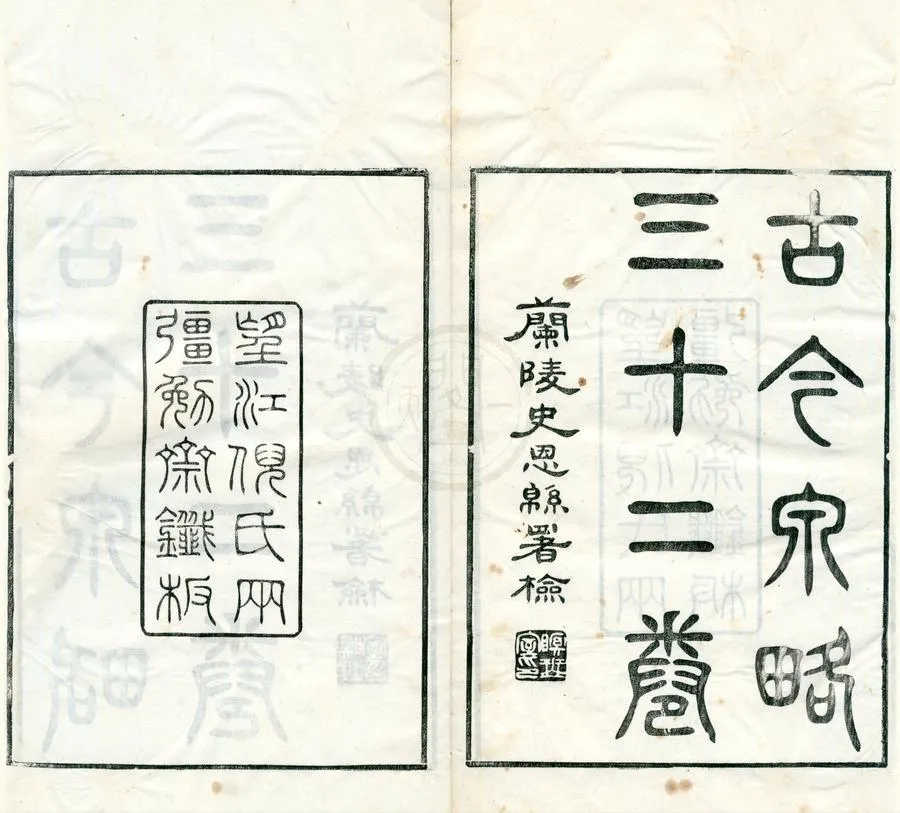 古今泉略
三十二卷
蘭陵史恩緜署檢
望江倪氏兩
彊勉齋鑯板